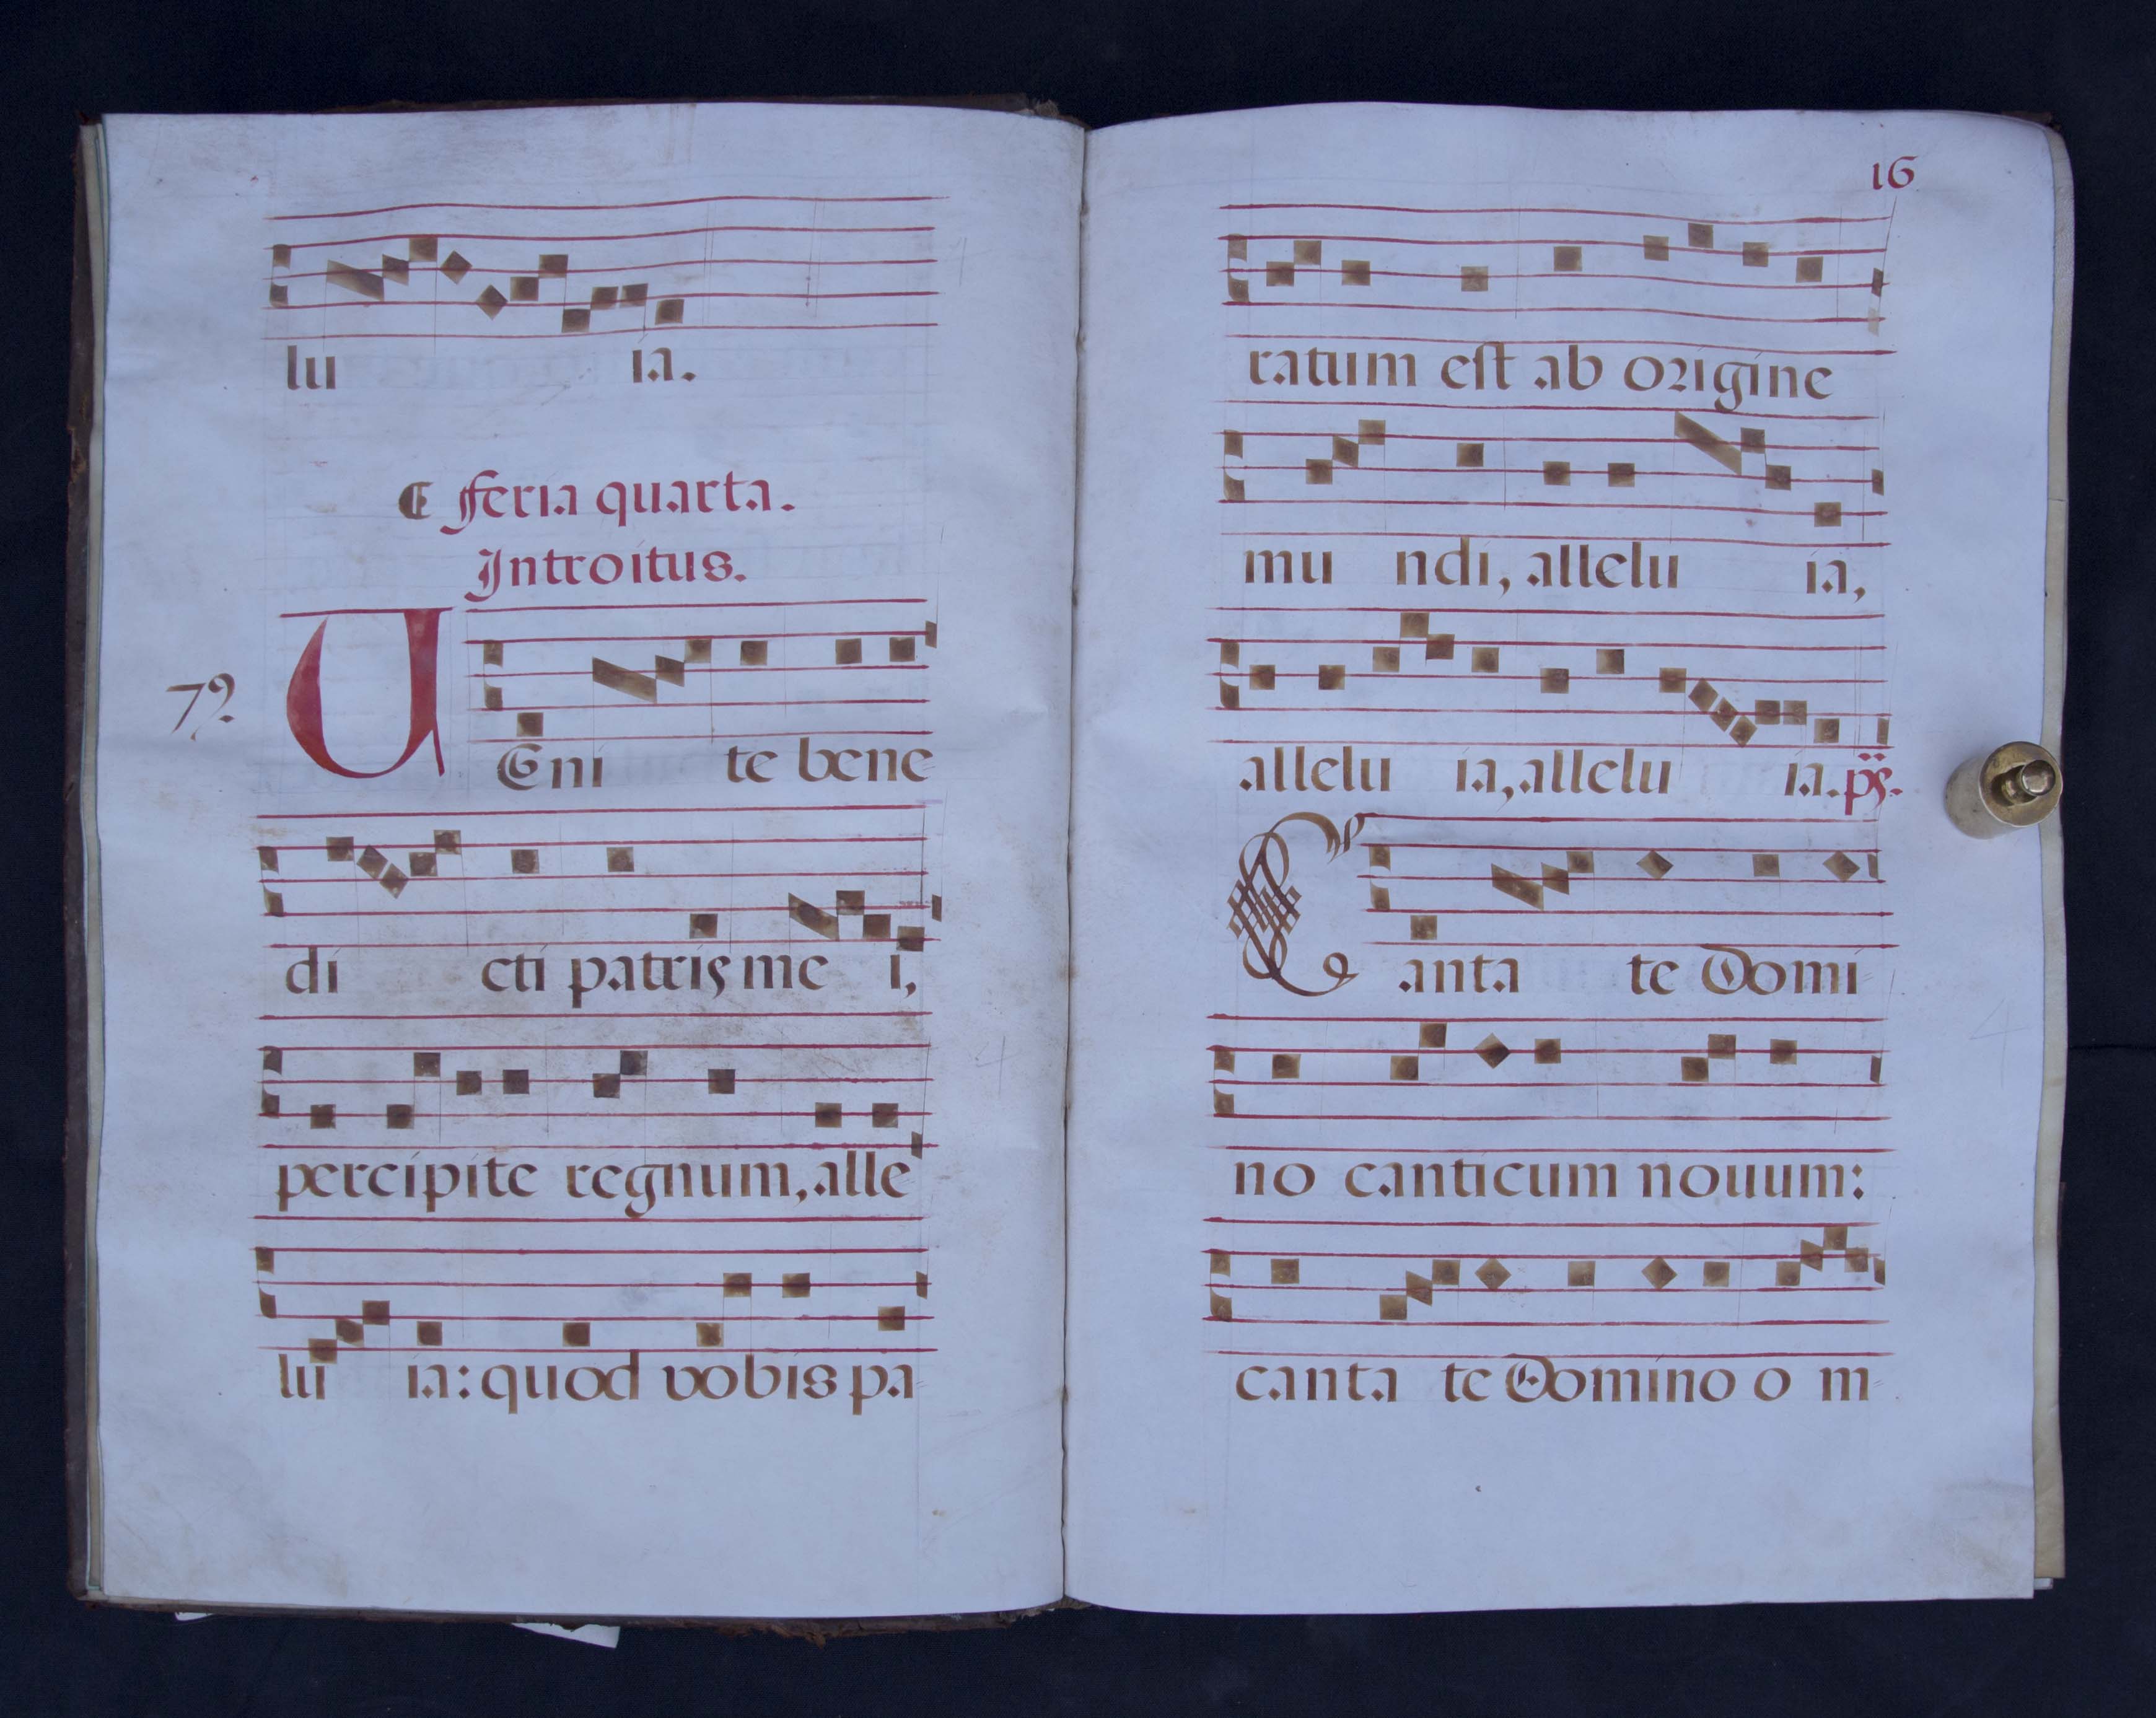 lu ia.
feria quarta.
Introitus.
7º.
VEni te bene=
di cti patris me i,
percipite regnum, alle=
lu ia: quod vobis pa=
16
ratum est ab origine
mu ndi, allelu ia,
allelu ia, allelu ia. ps.
Canta te Domi=
no canticum nouum:
canta te Domino o m=